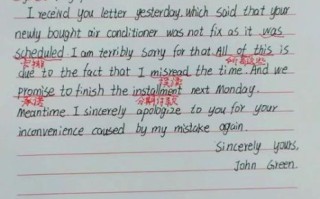 I receivd you letter yesterday. which said that your
newly bought air conditioner was not fix as it was
scheduled I am terribly sorry for that. All of this is
安排 所有这些
due to the fact that I misread the time. And we
承诺
promise to finish the installment next Monday.
分期付款
Meantime I sincerely apologize to you for your
inconvenience caused by my mistake again.
Sincerely yours,
John Green.